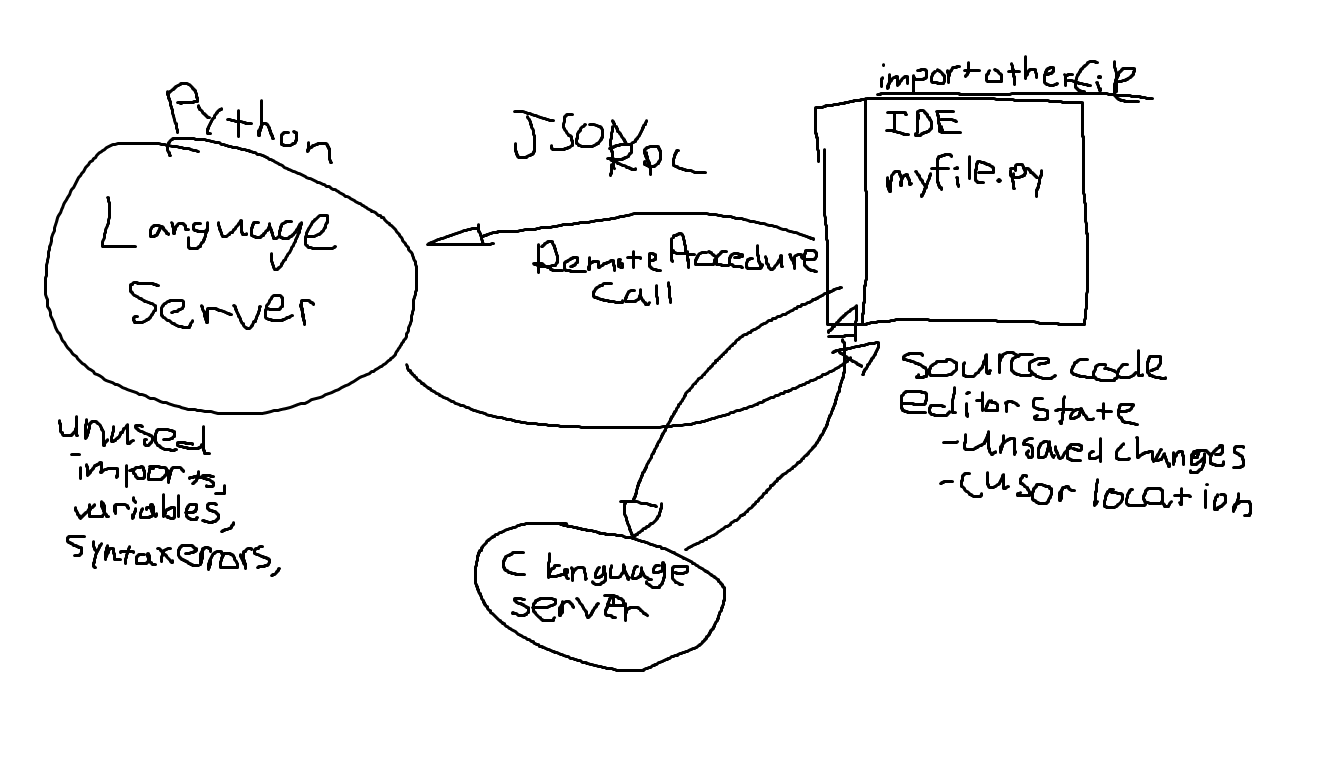 Python
Language
Server
unused
imports,
variables,
syntax errors,
JSON
RPC
Remote Procedure
call
import otherfile
IDE
myfile.py
source code
editor state
-unsaved changes
-cusor location
C language
server